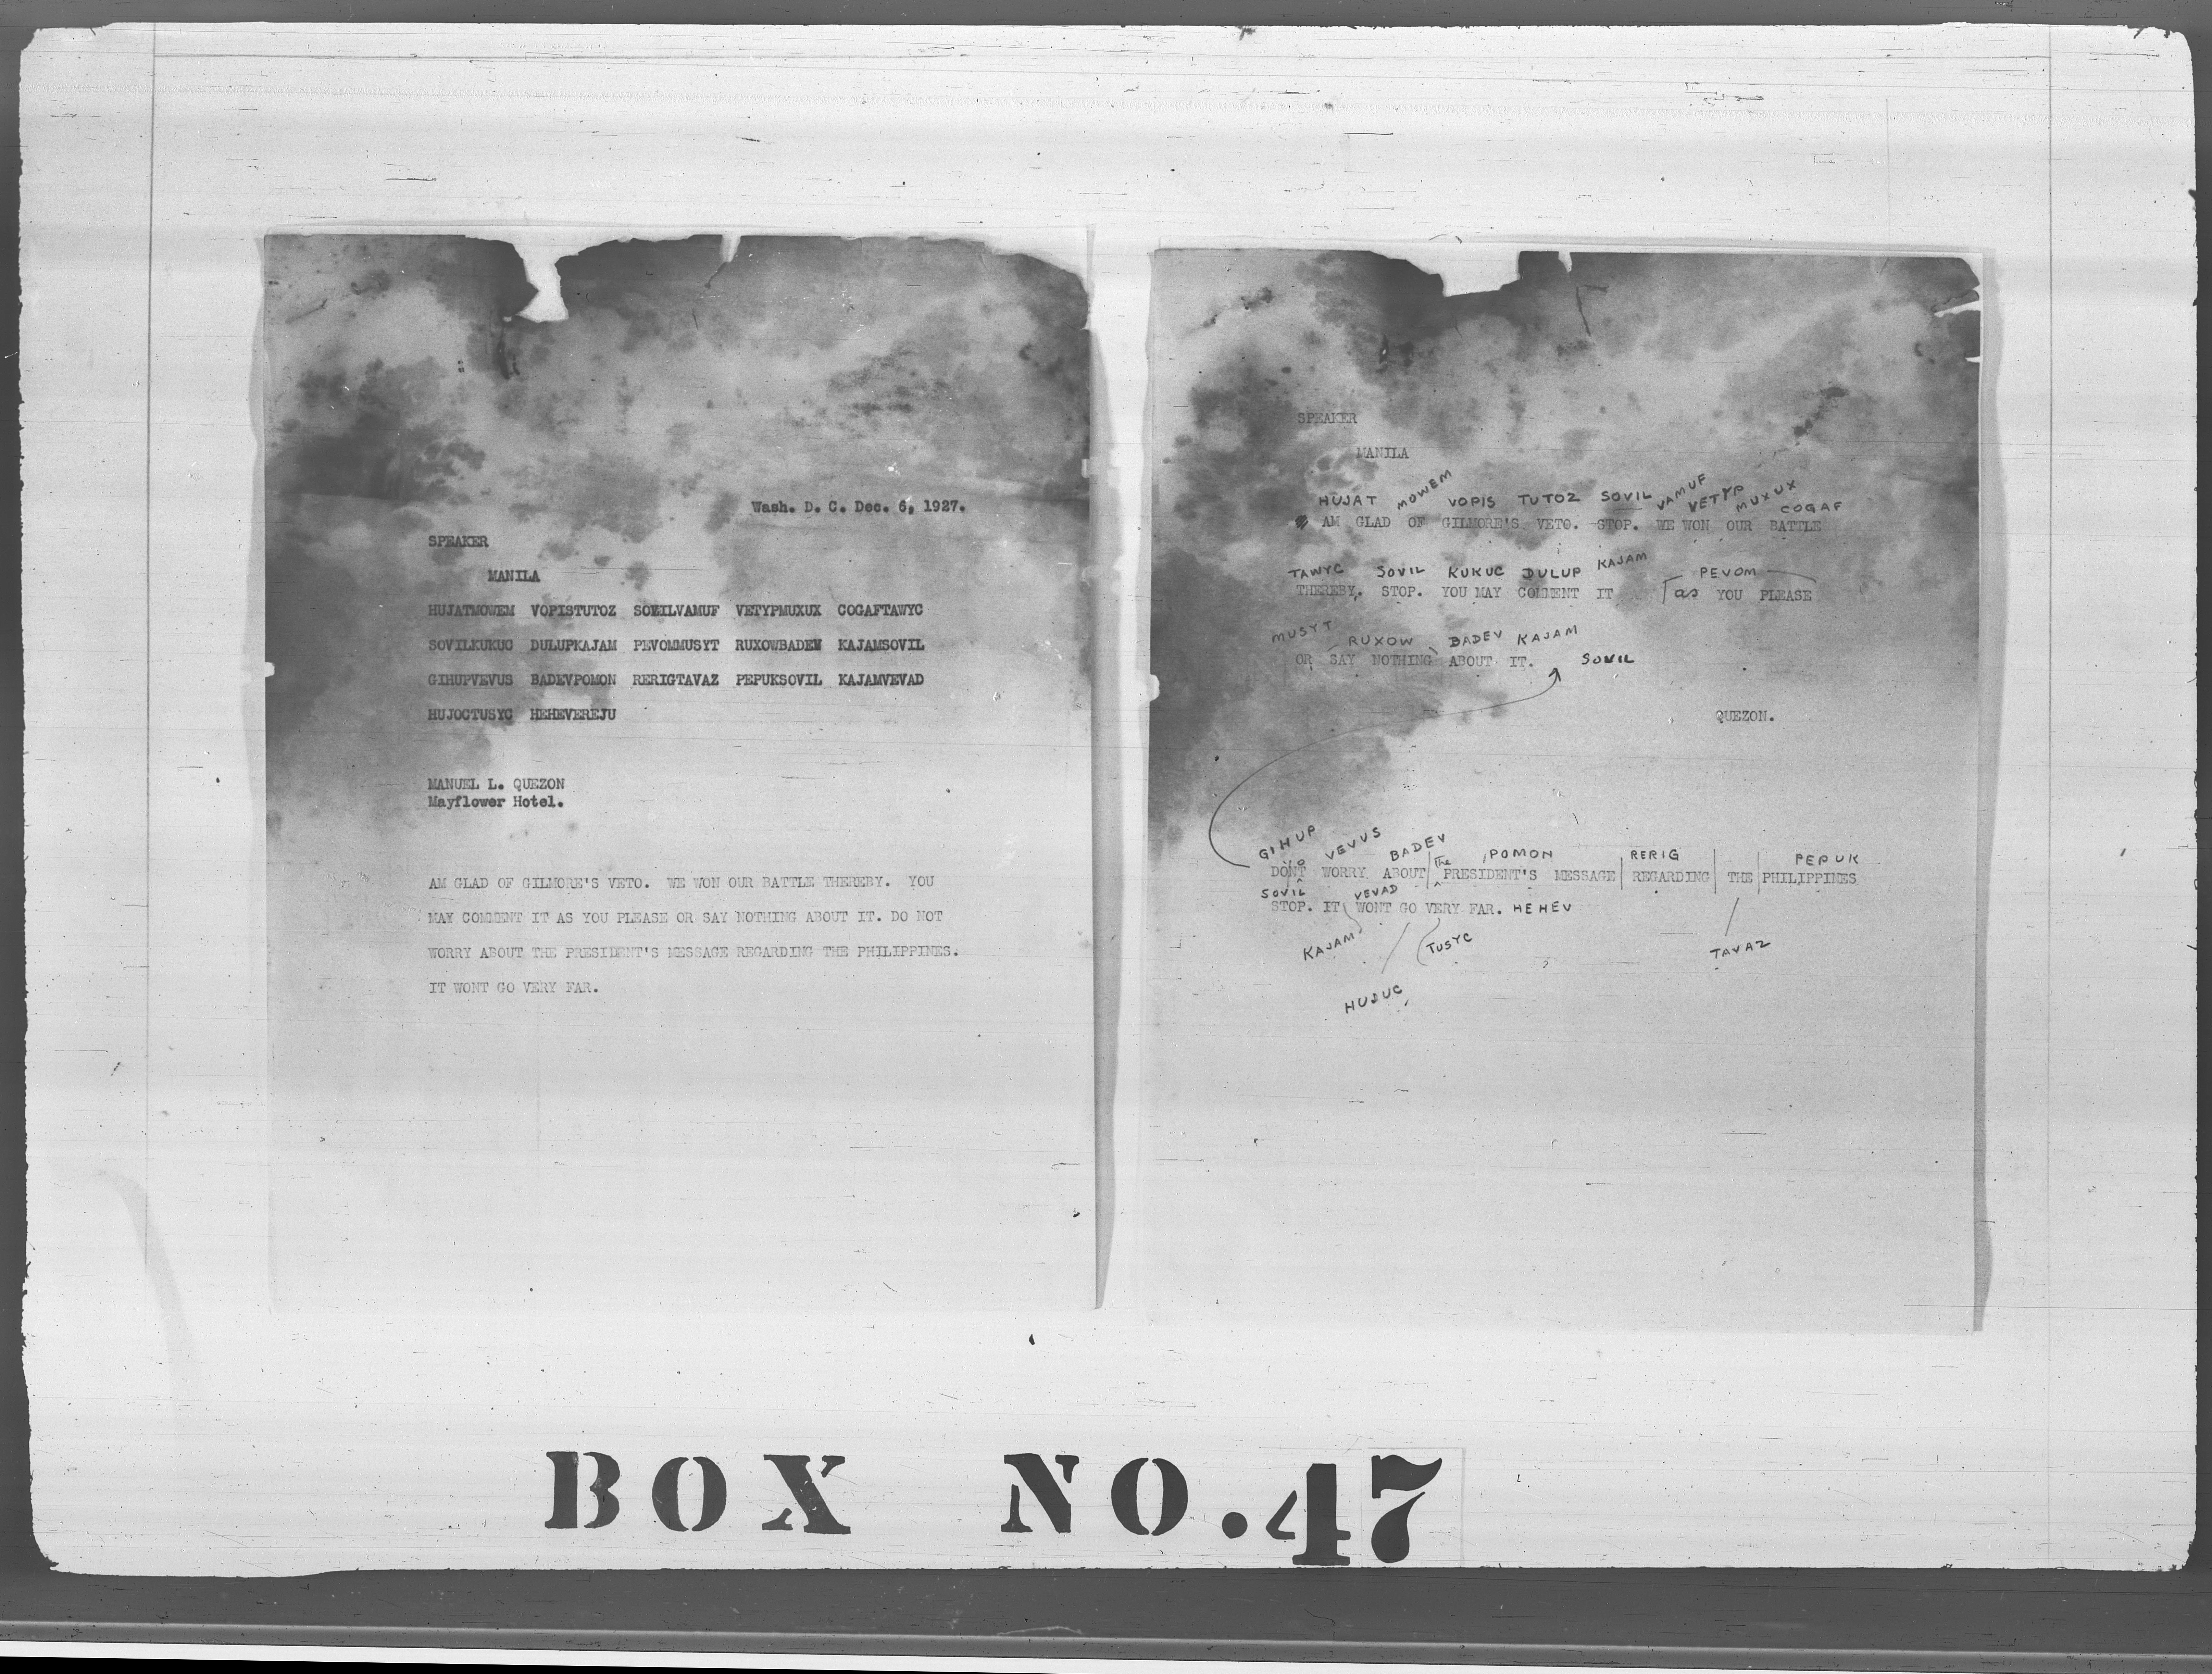 Wash. D. C. Dec. 6, 1927.
SPEAKER
MANILA
HUJATMOWEM VOPISTUTOZ SOVILVAMUF VETYPMUXUX COGAFTAWYC
SOVILKUKUC DULUPKAJAM PEVOMMUSYT RUXOWBADEV KAJAMSOVIL
GIHUPVEVUS BADEVPOMON RERIGTAVAZ PEPUKSOVIL KAJAMVEVAD
HUJOCTUSYC HEHEVEREJU
MANUEL L. QUEZON
Mayflower Hotel.
AM GLAD OF GILMORE'S VETO. WE WON OUR BATTLE THEREBY. YOU
MAY COMMENT IT AS YOU PLEASE OR SAY NOTHING ABOUT IT. DO NOT
WORRY ABOUT THE PRESIDENT'S MESSAGE REGARDING THE PHILIPPINES.
IT WONT GO VERY FAR.
SPEAKER
MANILA
HUJAT MOWEM VOPIS TUTOZ SOVIL VAMUF VETYP MUXUX COGAF
AM GLAD OF GILMORE'S VETO. STOP. WE WON OUR BATTLE
TAWYC SOVIL KUKUC DULUP KAJAM PEVOM
THEREBY. STOP. YOU MAY COMMENT IT as YOU PLEASE
MUSYT RUXOW BADEV KAJAM
OR SAY NOTHING ABOUT IT. SOVIL
QUEZON.
GIHUP VEVUS BADEV The POMON RERIG PEPUK
DONT WORRY ABOUT PRESIDENT'S MESSAGE REGARDING THE PHILIPPINES
SOVIL VEVAD
STOP. IT WONT GO VERY FAR. HEHEV
KAJAM TUSYC TAVAZ
HUJUC
BOX NO. 47